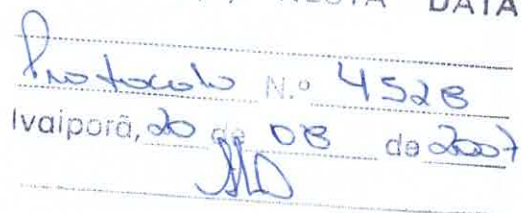 NESTA DATA
Protocolo N.º 4528
Ivaiporã, 20 de 08 de 2007